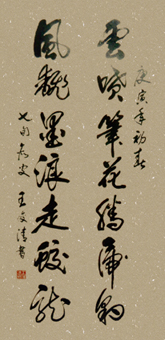 庚寅年初春
雲噴筆花騰虎豹
風翻墨浪走蛟龍
七旬叟
王文清書